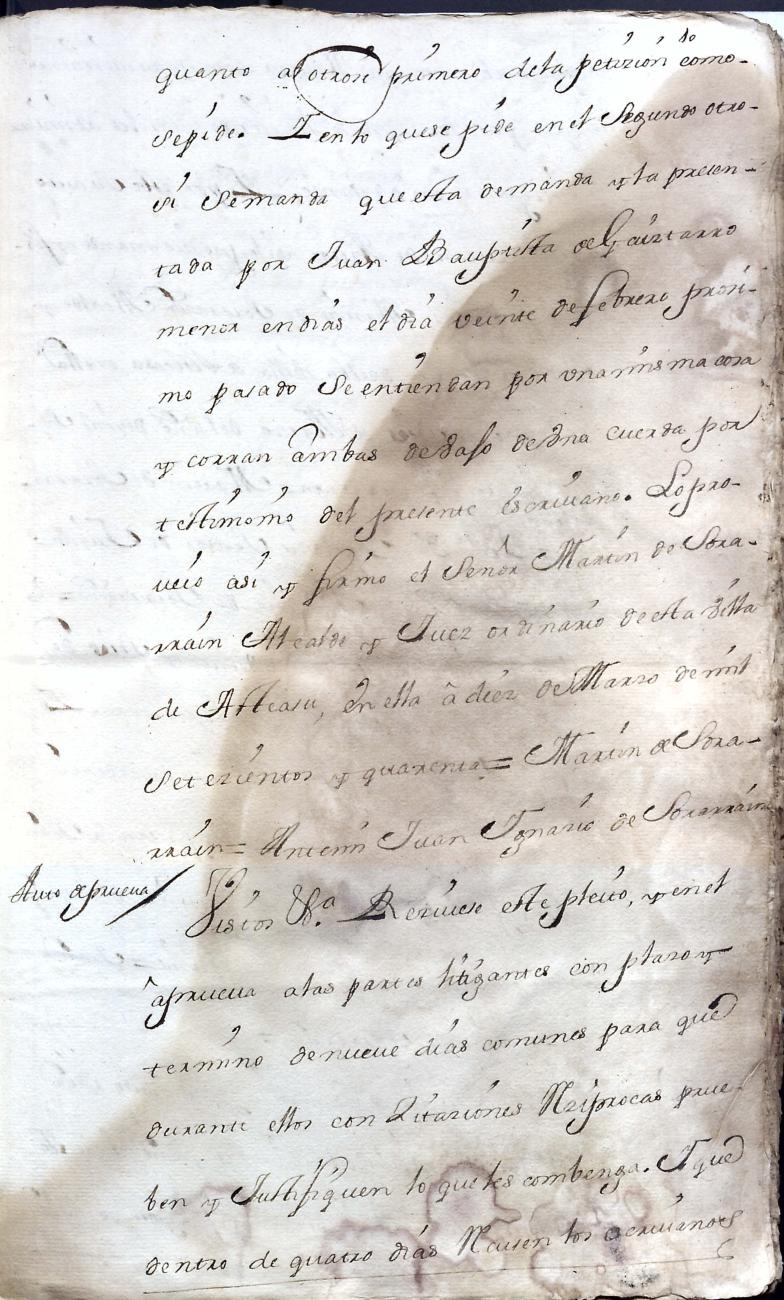 quanto al otrosi primero de la petizión lo como-
sepide. Y en lo quese pide en el Segundo otro-
si Semanda que esta demanda y la presen-
tada por Juan Bauptista de Gaiztarro
menor en dias el dia veinte de febrero proxi-
mo pasado Se entiendan por vna misma cosa
y corran ambas debajo de vna cuerda por
testimonio del presente Escriuano. Lo pro-
ueió asi y firmo el Señor Martin de Sora-
rrain Alcalde y Juez ordinario de esta Villa
de Asteasu, en ella â diez de Marzo de mil
Setezientos y quarenta = Martin de Sora-
rrain = Antemi Juan Ygnazio de Sorarrain
Auto de prueua
Vistos &a. Reziuese este pleito, y en el
â prueua a las partes litigantes con plazo y
termino de nueue dias comunes para que
durante ellos con Zitaziones Rezíprocas prue-
ben y Justifiquen lo que les combenga. Y que
dentro de quatro dias los